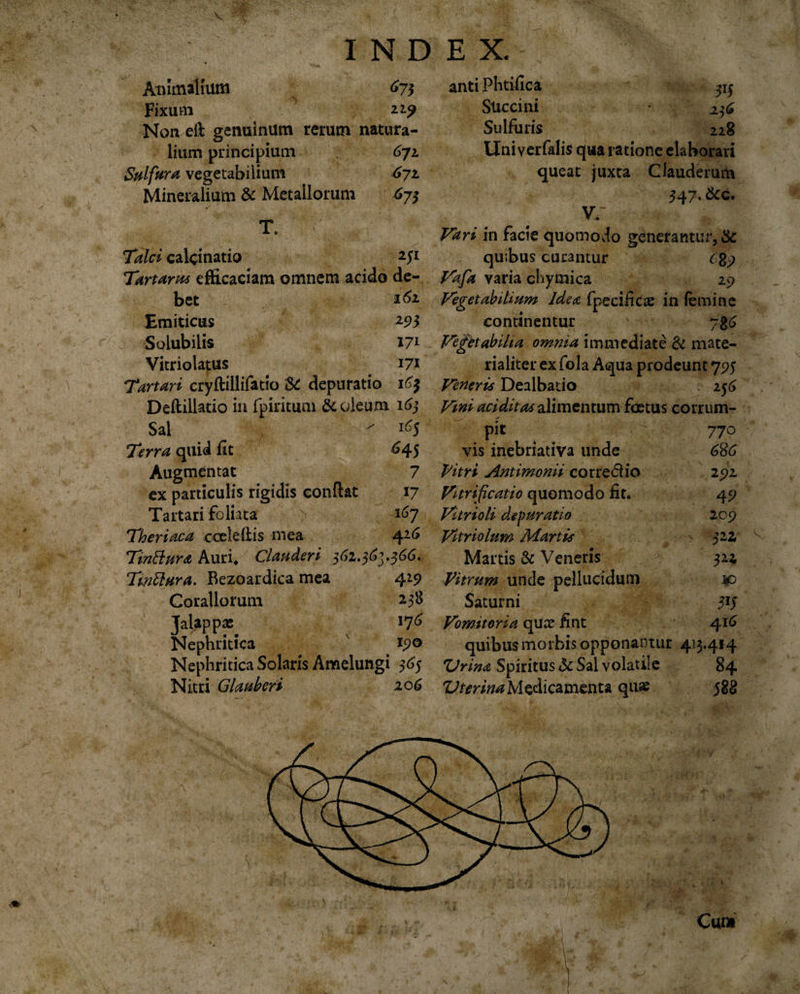 INDEX.
Animalium 673
Fixum 229
Non eſt genuinum rerum natura-
lium principium 672
Sulfura vegetabilium 672
Mineralium & Metallorum 673
T.
Talci calcinatio 251
Tartarus efficaciam omnem acido de-
bet 162
Emiticus 293
Solubilis 171
Vitriolatus 171
Tartari cryſtilliſatio & depuratio 163
Deſtillatio in ſpiritum & oleum 163
Sal 165
Terra quid ſit 645
Augmentat 7
ex particulis rigidis conſtat 17
Tartari foliata 167
Theriaca cœleſtis mea 426
Tinctura Auri. Clauderi 362.363.366.
Tinctura. Bezoardica mea 429
Corallorum 238
Jalappæ 176
Nephritica 190
Nephritica Solaris Amelungi 365
Nitri Glauberi 206
anti Phtiſica 315
Succini 236
Sulfuris 228
Univerſalis qua ratione elaborari
queat juxta Clauderum
347. &c.
V.
Vari in facie quomodo generantur, &
quibus curantur 689
Vaſa varia chymica 29
Vegetabilium Ideæ ſpecificæ in ſemine
continentur 786
Vegetabilia omnia immediatè & mate-
rialiter ex ſola Aqua prodeunt 795
Veneris Dealbatio 256
Vini aciditas alimentum fœtus corrum-
pit 770
vis inebriativa unde 686
Vitri Antimonii correctio 292
Vitrificatio quomodo fit. 49
Vitrioli depuratio 209
Vitriolum Martis 322
Martis & Veneris 322
Vitrum unde pellucidum
Saturni 315
Vomitoria quæ ſint 416
quibus morbis opponantur 413.414
Urina Spiritus & Sal volatile 84
Uterina Medicamenta quæ 588
Cum